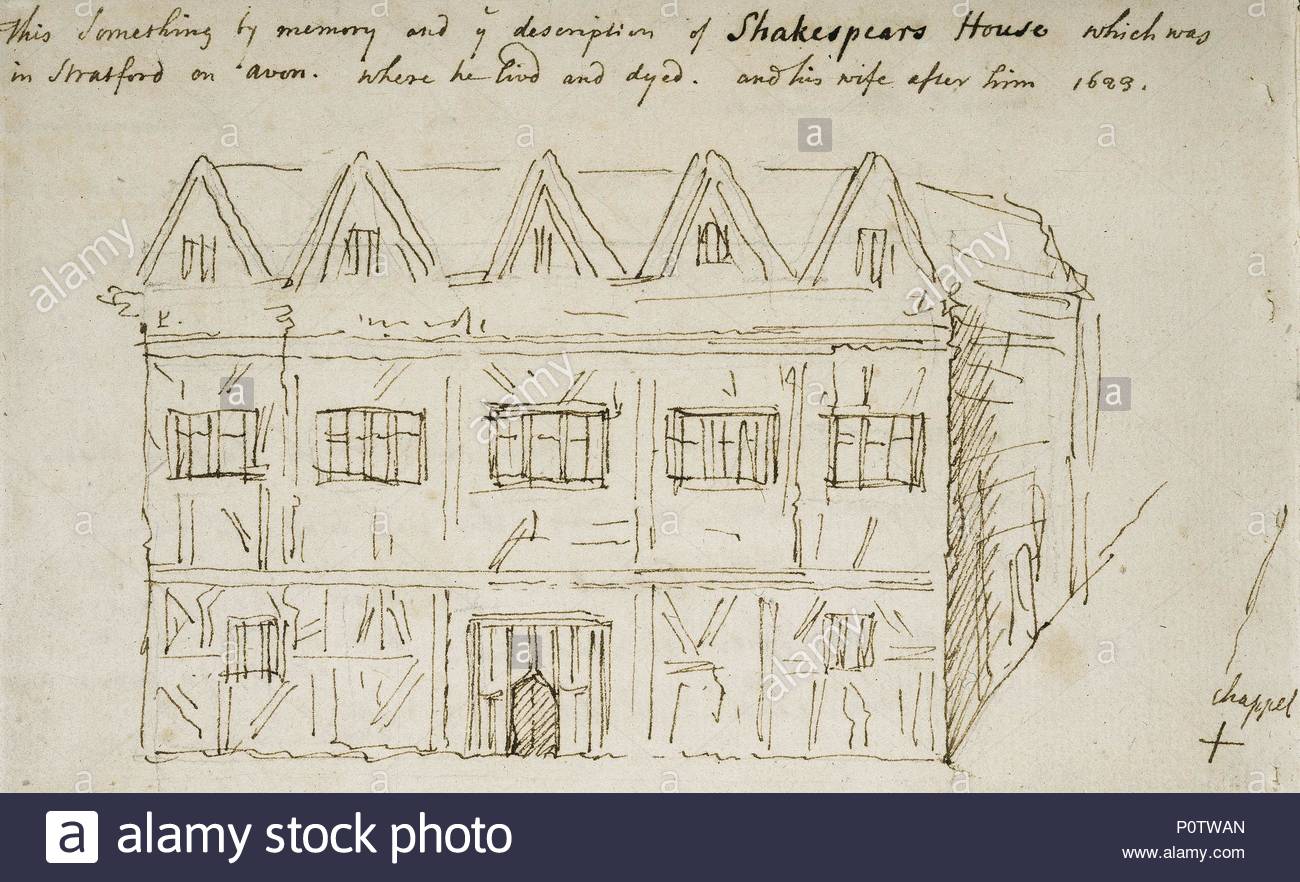 This Something by memory and yͤ description of Shakespears House which was
in Stratford on avon. where he livd and dyed. and his wife after him 1623.
chappel
alamy
alamy
alamy
alamy
a alamy stock photo
P0TWAN
www.alamy.com